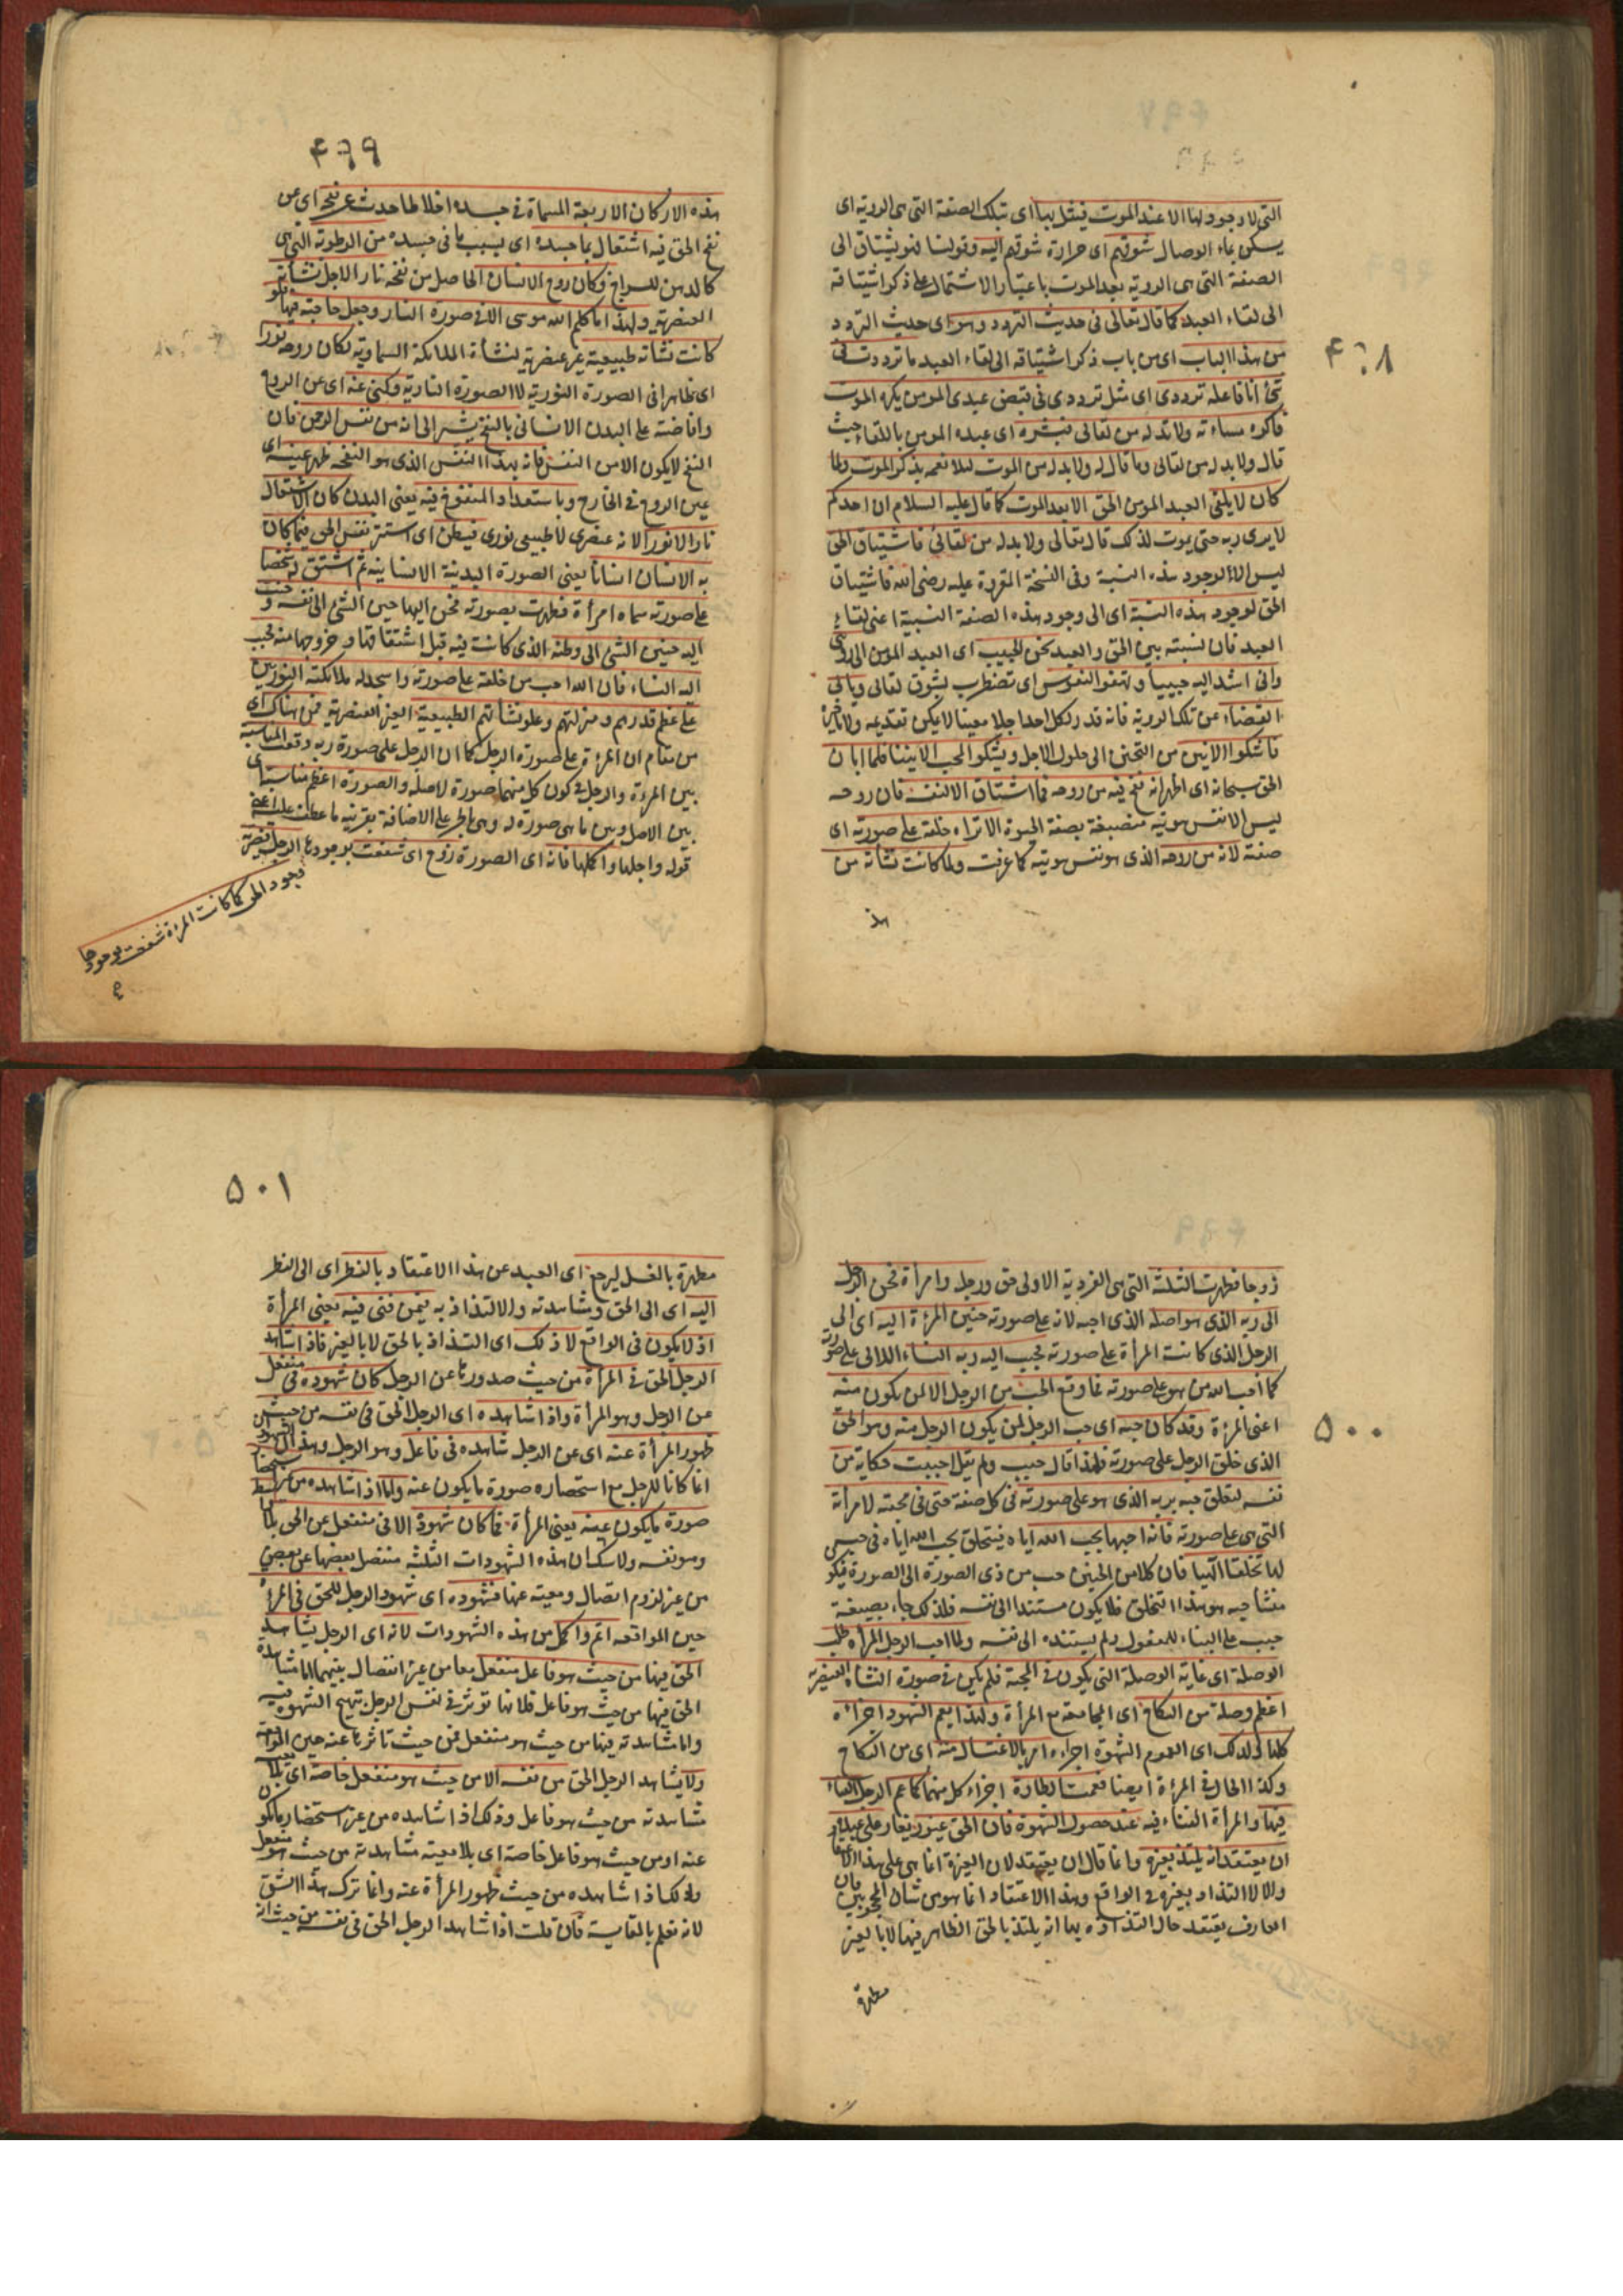 ٤٩٨
التى لا وجود لها الا عند الموت فيبل بها اى بتلك الصفة التى هى الرؤية اى
يسكن بماء الوصال شوقهم اى حرارة شوقهم اليه وقولنا فهو يشتاق الى
الصفة التى هى الرؤية بعد الموت باعتبار الاشتمال على ذكر اشتياقه
الى لقاء العبد كما قال تعالى فى حديث التردد وهو اى حديث التردد
من هذا الباب اى من باب ذكر اشتياقه الى لقاء العبد ما ترددت فى
شئ انا فاعله ترددى اى مثل ترددى فى قبض عبدى المومن يكره الموت
واكره مساءته ولا بد له من لقائى فبشره اى عبده المومن باللقاء حيث
قال ولا بد له من لقائى وما قال له ولا بد له من الموت لئلا يغمه بذكر الموت ولما
كان لا يلقى العبد المومن الحق الا بعد الموت كما قال عليه السلام ان احدكم
لا يرى ربه حتى يموت لذلك قال تعالى ولا بد له من لقائى فاشتياق الحق
ليس الا لوجود هذه النسبة وفى النسخة المقروة عليه رضى الله فاشتياق
الحق لوجود هذه النسبة اى الى وجود هذه الصفة النسبية اعنى لقاء
العبد فان لنسبته بين الحق والعبد يحن الحبيب اى العبد المومن الى رؤيتى
وانى اشد اليه حنينا وتهفو النفوس اى تضطرب لشوق لقائى ويابى
القضاء عن تلك الرؤية فانه قدر لكل احد اجلا معينا لا يمكن تقديمه ولا تاخيره
فاشكوا الانين من التحنن الى حلول الاجل ويشكو المحب الانينا فلما ابان
الحق سبحانه اى اظهر انه نفخ فيه من روحه فما اشتاق الا لنفسه فان روحه
ليس الا نفس هويته منصبغة بصفة الحيوة الا تراه خلقه على صورته اى
صفته لانه من روحه الذى هو نفس هويته كما عرفت ولما كانت نشأته من
هذ
٤٩٩
هذه الاركان الاربعة المسماة فى جسده اخلاطا حدث عن نفخه اى عن
نفخ الحق فيه اشتعال بما جسده اى بسبب ما فى جسده من الرطوبة التى هى
كالدهن للسراج فكان روح الانسان الحاصل من نفخه نارا لاجل نشأته
العنصرية ولهذا ما كلم الله موسى الا فى صورة النار وجعل حاجته فيها فلو
كانت نشأته طبيعية غير عنصرية كنشأة الملائكة السماوية لكان روحه نورا
اى ظاهرا فى الصورة النورية لا الصورة النارية وكنى عنه اى عن الروح
وافاضته على البدن الانسانى بالنفخ يشير الى انه من نفس الرحمن فان
النفخ لا يكون الا من النفس فانه بهذا النفس الذى هو النفخة ظهر عينه اى
عين الروح فى الخارج وباستعداد المنفوخ فيه يعنى البدن كان الاشتعال
نارا لا نورا لانه عنصرى لا طبيعى نورى فبطن اى استتر نفس الحق فيما كان
به الانسان انسانا يعنى الصورة البدنية الانسانية ثم اشتق له شخصا
على صورته سماه امرأة فظهرت بصورته فحن اليها حنين الشئ الى نفسه وحنت
اليه حنين الشئ الى وطنه الذى كانت فيه قبل اشتقاقها وخروجها منه فحبب
اليه النساء فان الله احب من خلقه على صورته واسجد له ملائكته النوريين
على عظم قدرهم ومنزلتهم وعلو نشأتهم الطبيعية الغير العنصرية فمن هناك اى
من مقام ان المرءة على صورة الرجل كما ان الرجل على صورة ربه وقعت المناسبة
بين المرءة والرجل فى كون كل منهما صورة لاصله والصورة اعظم مناسبة اى
بين الاصل وبين ما هى صورة له وهى بالجر على الاضافة بقرينة ما عطف عليه اعنى
قوله واجلها واكملها فانها اى الصورة زوج اى شفعت بوجودها الرجل فصيرته
وجود الحق كما كانت المرءة شفعت بوجودها
٥٠٠
زوجا فظهرت الثلثة التى هى الفردية الاولى حق ورجل وامرأة فحن الرجل
الى ربه الذى هو اصله الذى احبه لانه على صورته حنين المرءة اليه اى الى
الرجل الذى كانت المرأة على صورته فحبب اليه ربه النساء اللاتى على صورته
كما احب الله من هو على صورته فما وقع الحب من الرجل الا لمن يكون منه
اعنى المرءة وقد كان حبه اى حب الرجل لمن يكون الرجل منه وهو الحق
الذى خلق الرجل على صورته فلهذا قال حبب ولم يقل احببت حكاية من
نفسه لتعلق حبه بربه الذى هو على صورته فى كل صفة حتى فى محبته لامرأته
التى هى على صورته فانه احبها بحب الله اياه فيتخلق بحب الله اياه فى حبه
لها تخلقا الهيا فان كلا من الحنين حب من ذى الصورة الى الصورة فيكو
منشأ حبه هو هذا التخلق فلا يكون مستندا الى نفسه فلذلك جاء بصيغة
حبب على البناء للمفعول ولم يسنده الى نفسه ولما احب الرجل المرأة طلب
الوصلة اى غاية الوصلة التى يكون فى المحبة فلم يكن فى صورة النشأة العنصرية
اعظم وصلة من النكاح اى المجامعة مع المرأة ولهذا يعم الشهود اجزاءه
كلها ولذلك اى لعموم الشهوة اجزاءه امر بالاغتسال منه اى من النكاح
وكذا الحال فى المرءة ايضا فعمت الطهارة اجزاء كل منهما كما عم الرجل الفناء
فيها والمرأة الفناء فيه عند حصول الشهوة فان الحق غيور يغار على عبده
ان يعتقد انه يلتذ بغيره وانما قال ان يعتقد لان الغيرة انما هى على هذا الاعتقا
والا لا التذاذ بغيره فى الواقع وهذا الاعتقاد انما هو من شان المحجوبين فان
العارف يعتقد حال التذاذه بها انه يلتذ بالحق الظاهر فيها لا بالغير
مطهرة
٥٠١
مطهرة بالغسل ليرجع اى العبد عن هذا الاعتقاد بالنظر اى الى النظر
اليه اى الى الحق ومشاهدته والالتذاذ به فيمن فنى فيه يعنى المرأة
اذ لا يكون فى الواقع الا ذلك اى التذاذ بالحق لا بالغير فاذا شاهد
الرجل الحق فى المرأة من حيث صدورها عن الرجل كان شهوده فى منفعل
عن الرجل وهو المرأة واذا شاهده اى الرجل الحق فى نفسه من حيث
ظهور المرأة عنه اى عن الرجل شاهده فى فاعل وهو الرجل وهذان الشهودان
انما كانا للرجل مع استحضاره صورة ما يكون عنه ولما اذا شاهده من غير
صورة ما يكون عنه يعنى المرأة فما كان شهوده الا فى منفعل عن الحق بلا
وهو نفسه ولا شك ان هذه الشهودات الثلثة منفصل بعضها عن بعض
من غير لزوم اتصال ومعية عنها فشهوده اى شهود الرجل للحق فى المرأة
حين المواقعة اتم واكمل من هذه الشهودات لانه اى الرجل يشاهد
الحق فيها من حيث هو فاعل منفعل معا من غير انفصال بينهما اما مشاهدة
الحق فيها من حيث هو فاعل فلانها تؤثر فى نفس الرجل بتهيج الشهوة فيه
واما مشاهدته فيها من حيث هو منفعل فمن حيث تأثرها عنه حين المواقعة
ولا يشاهد الرجل الحق من نفسه الا من حيث هو منفعل خاصة اى بلا
مشاهدته من حيث هو فاعل وذلك اذا شاهده من غير استحضار ما يكون
عنه او من حيث هو فاعل خاصة اى بلا معية مشاهدته من حيث هو منفعل
وذلك اذا شاهده من حيث ظهور المرأة عنه وانما ترك هذا الشق
لانه يعلم بالمقايسة فان قلت اذا شاهد الرجل الحق فى نفسه من حيث انه